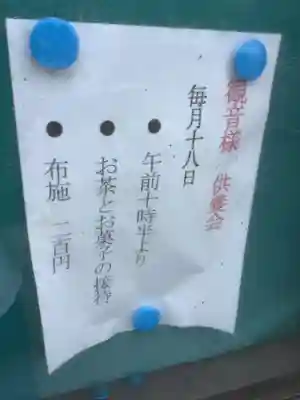 観音様 供養会
毎月十八日
● 午前十時半より
● お茶とお菓子の接待
● 布施 二百円